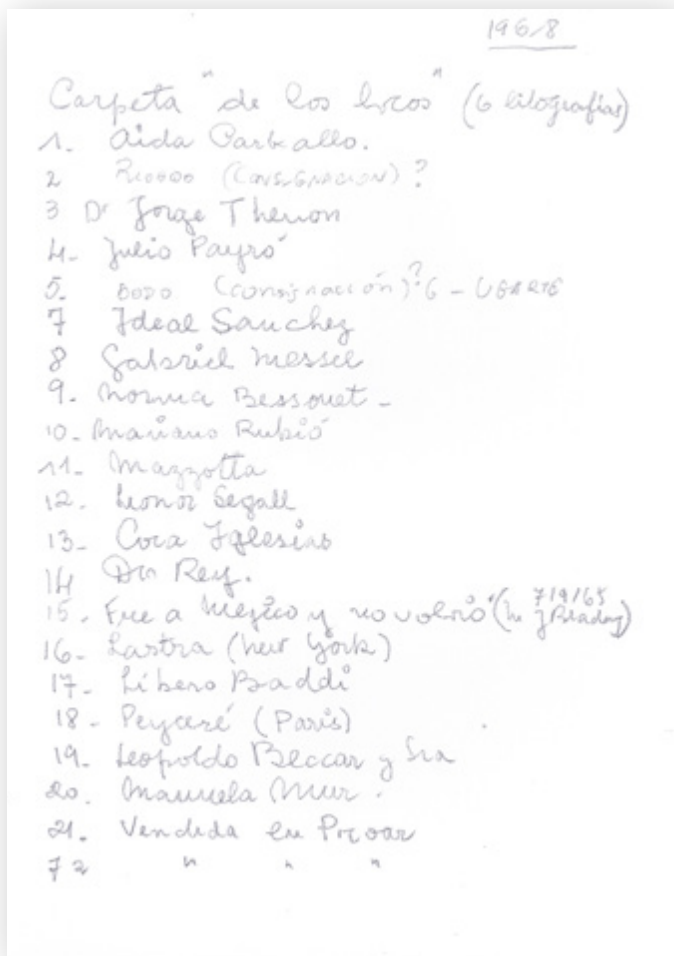 1968
Carpeta "de los locos" (6 litografías)
1. Aida Carballo.
2 (CONSIGNACION) ?
3 Dr Jorge Thenon
4- Julio Payró
5. BODO (consignación)? 6 - UGARTE
7 Ideal Sanchez
8 Gabriel Messil
9. Norma Bessouet -
10. Mariano Rubió
11- Mazzotta
12. Leonor Segall
13- Coca Iglesias
14 Dr Rey.
15. Fue a Mejico y no volvió (
16- Lastra (New York)
17- Líbero Baddi
18- (Paris)
19- Leopoldo Beccar y Sra
20. Manuela Mur.
21. Vendida en Proar
72 " " "